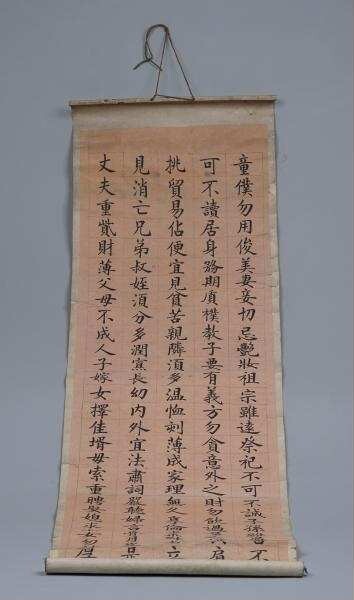 童僕勿用俊美妻妾切忌艷妝祖宗雖遠祭祀不可不誠子孫雖不
可不讀居身務期質樸教子要有義方勿貪意外之財勿飲過肩
挑貿易佔便宜見貧苦親隣須多温恤刻薄成家理無久享倫立
見消亡兄弟叔姪須分多潤寡長幼内外宜法肅詞嚴聽婦言
丈夫重貲財薄父母不成人子嫁女擇佳壻毋索重聘娶媳求女勿厚